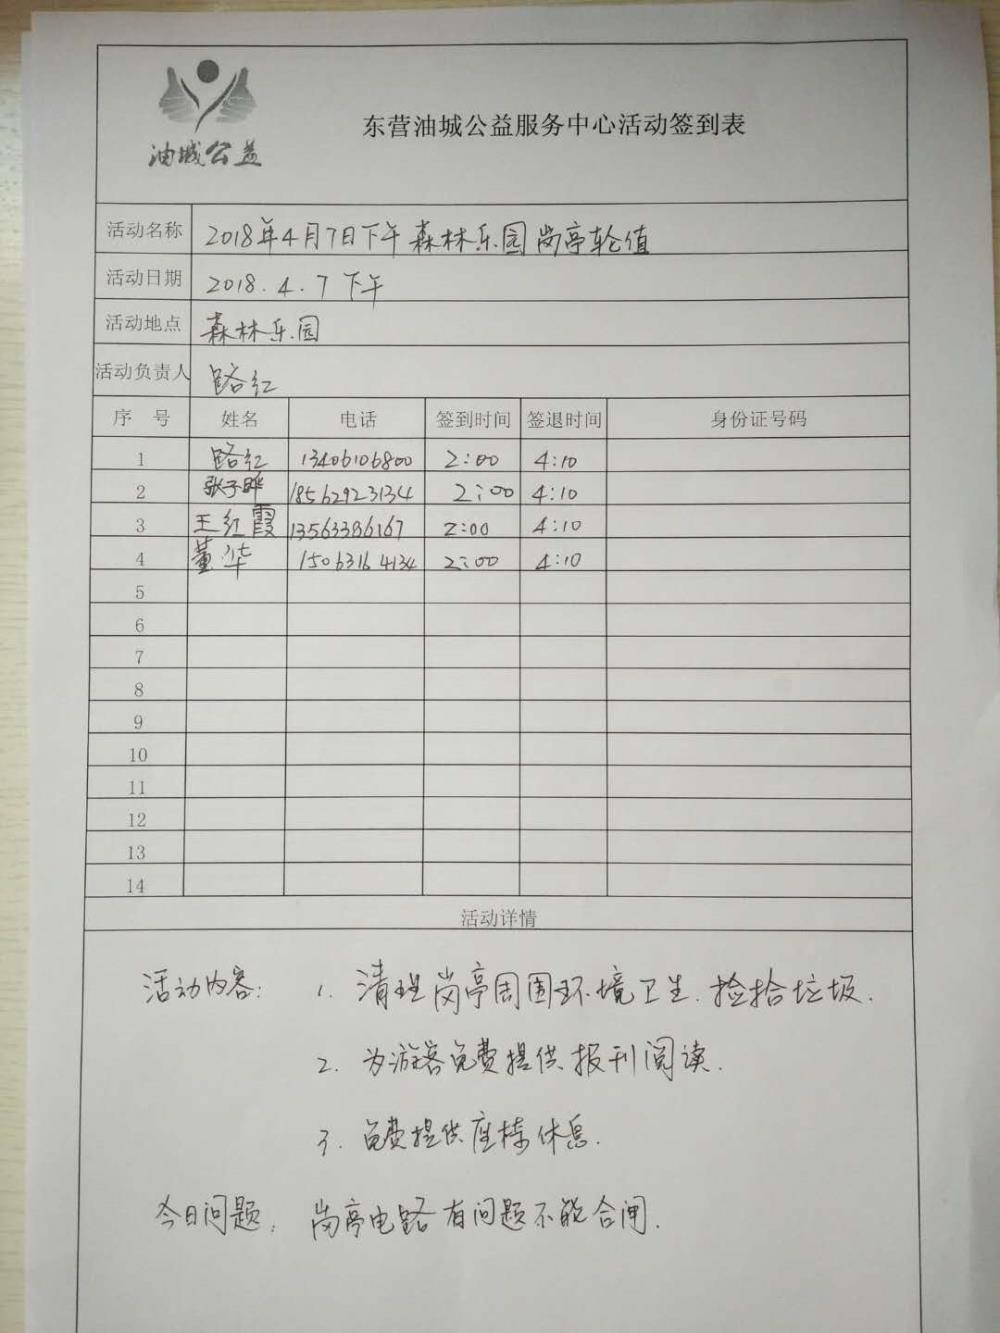 油城公益
东营油城公益服务中心活动签到表
活动名称 2018年4月7日下午森林乐园岗亭轮值
活动日期 2018.4.7下午
活动地点 森林乐园
活动负责人 路红
序 号 姓名 电话 签到时间 签退时间 身份证号码
1 路红 13406106800 2:00 4:10
2 张子晔 18562923134 2:00 4:10
3 王红霞 13563386167 2:00 4:10
4 董华 15063164134 2:00 4:10
5
6
7
8
9
10
11
12
13
14
活动详情
活动内容: 1. 清理岗亭周围环境卫生.捡拾垃圾.
2. 为游客免费提供报刊阅读.
3. 免费提供座椅休息.
今日问题: 岗亭电路有问题不能合闸.